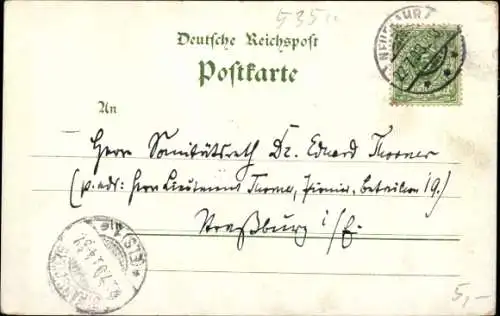 535
Deutsche Reichspost
Postkarte
An
Herrn Sanitätsrath Dr. Eduard Thorner
(p. adr: Herrn Lieutenant Thorner, Pionier-Bataillon 19.)
Straßburg i/E.
5,-